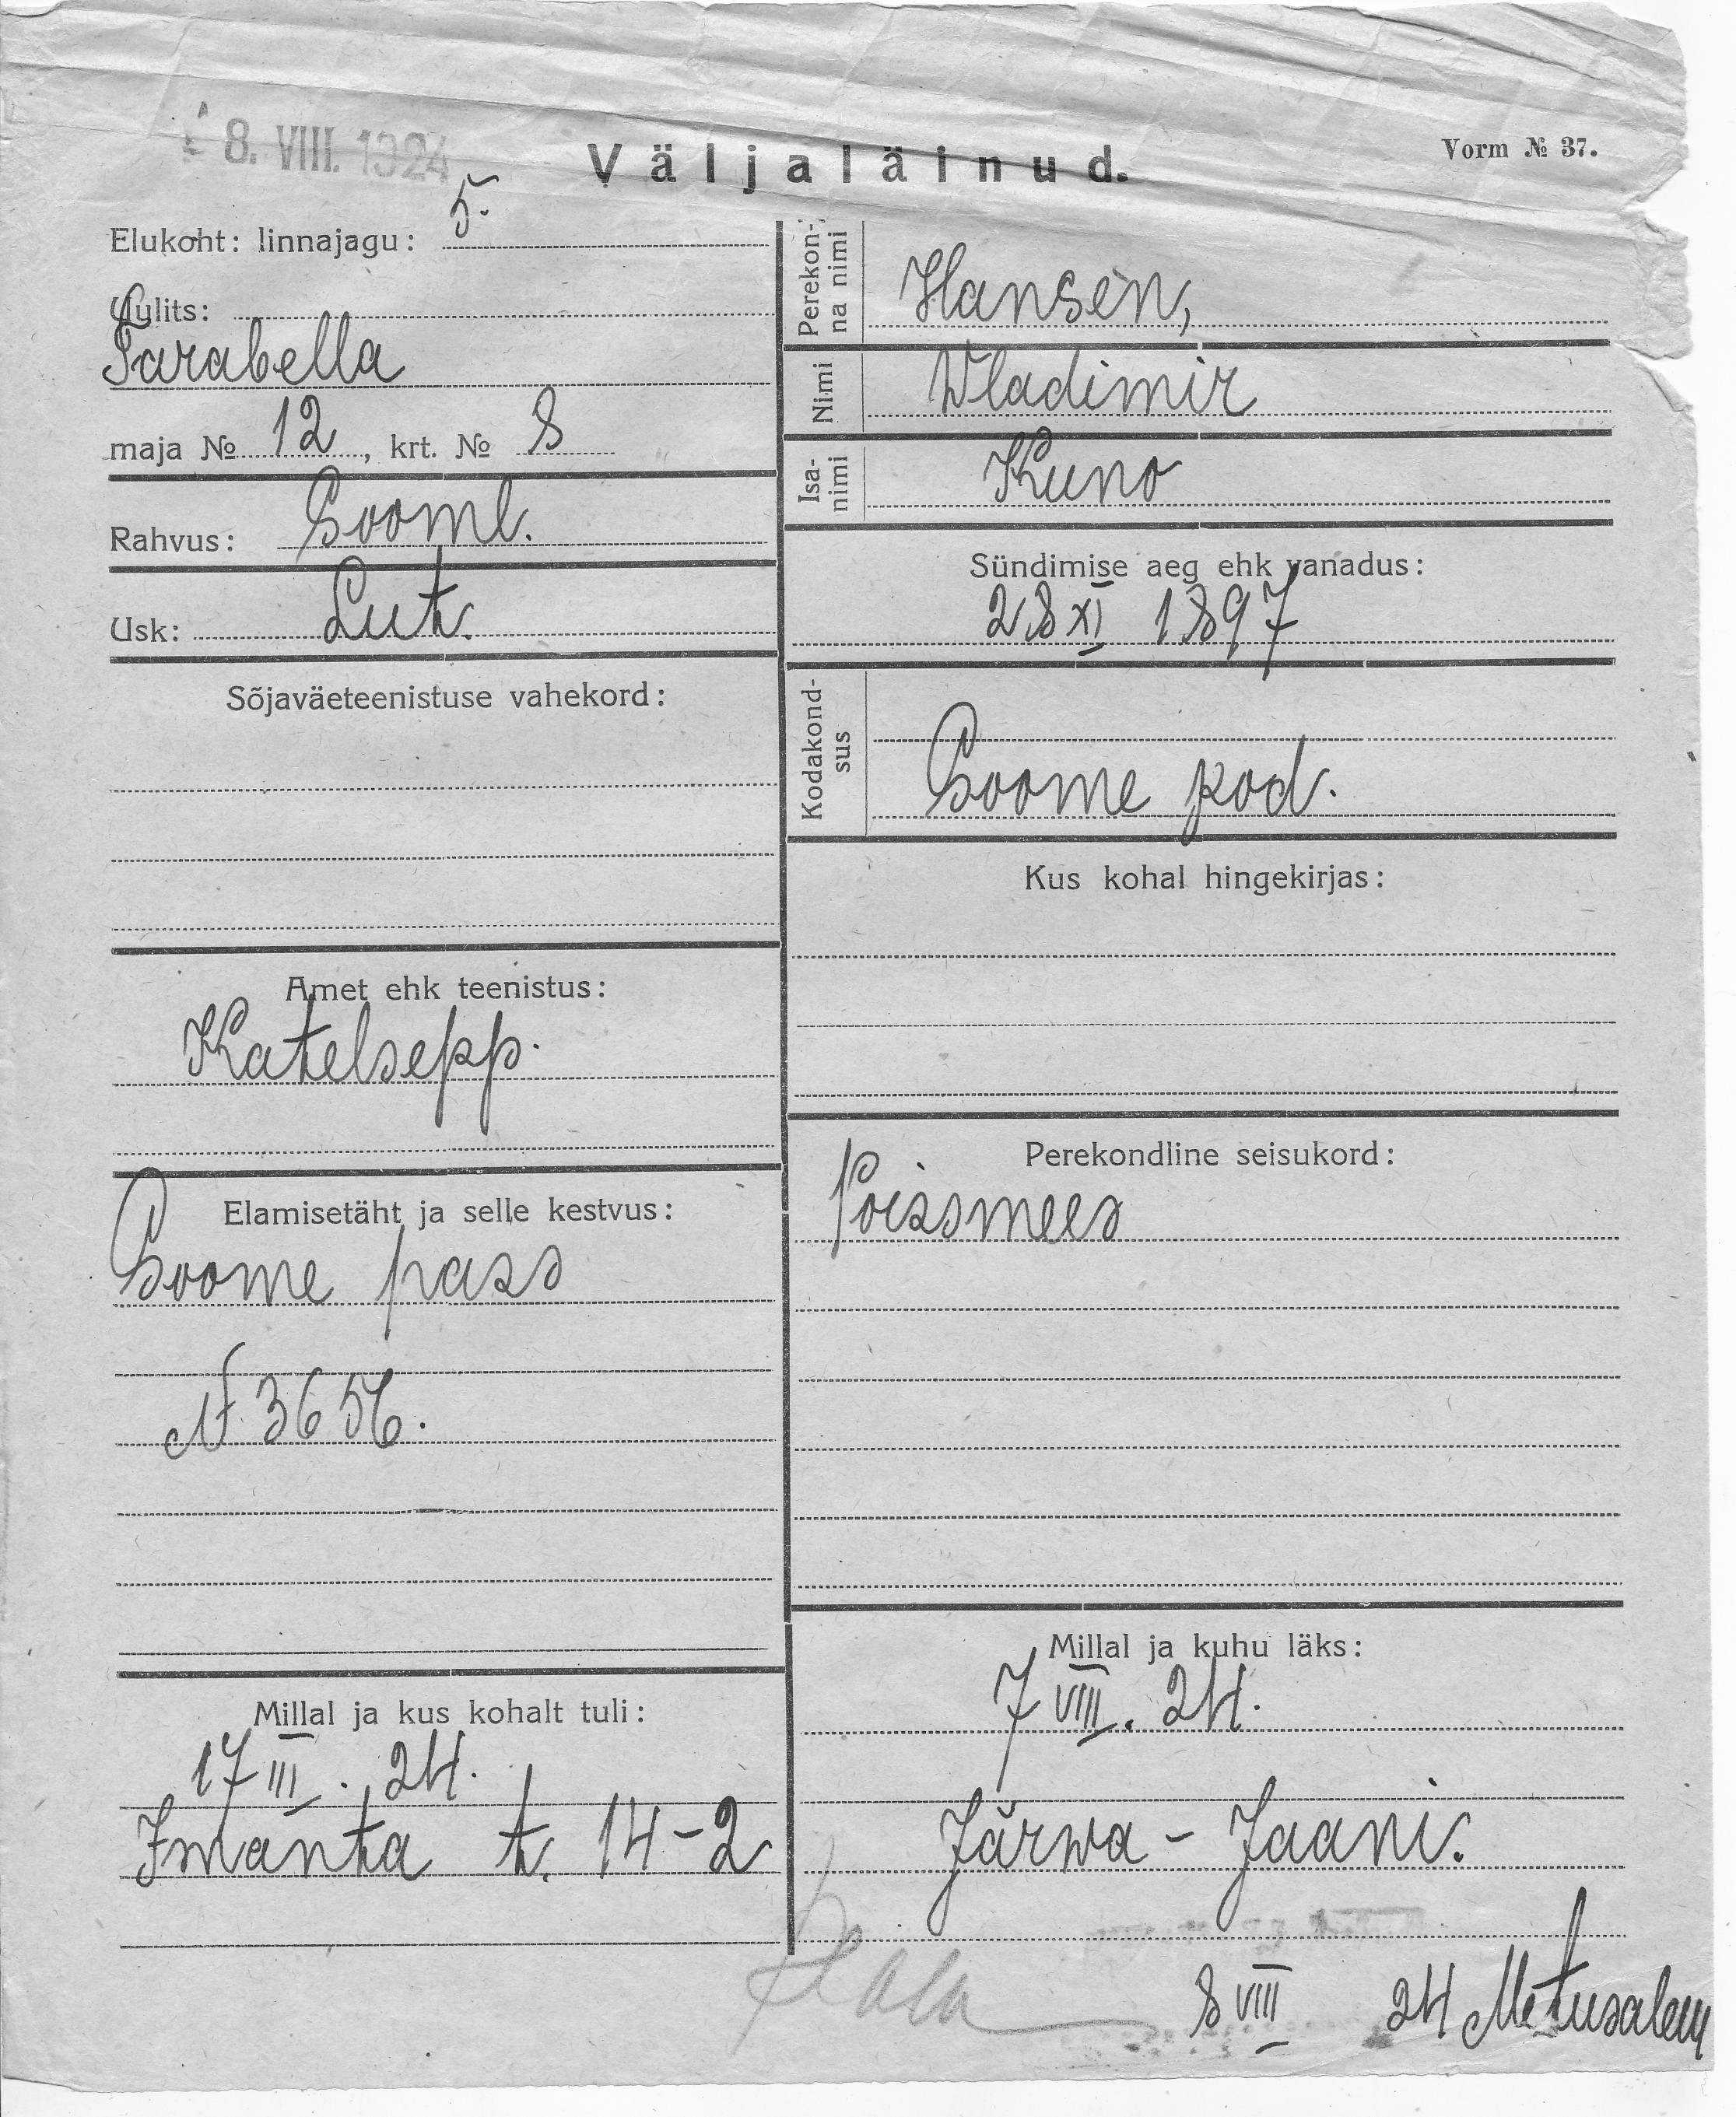 8. VIII. 1924
Väljaläinud.
Vorm № 37.
Elukoht: linnajagu: 5.
Uulits:
Tarabella
maja № 12, krt. № 8
Rahvus: Sooml.
Usk: Lut.
Sõjaväeteenistuse vahekord:
Amet ehk teenistus:
Katelsepp.
Elamisetäht ja selle kestvus:
Soome pass
N. 3656.
Millal ja kus kohalt tuli:
17 III. 24.
Imanta t. 14-2
Perekonna nimi
Hansen,
Nimi
Wladimir
Isanimi
Kuno
Sündimise aeg ehk vanadus:
28 XI 1897
Kodakondsus
Soome kod.
Kus kohal hingekirjas:
Perekondline seisukord:
Poissmees
Millal ja kuhu läks:
7 VIII. 24.
Järwa-Jaani.
8 VIII 24 Metusalem